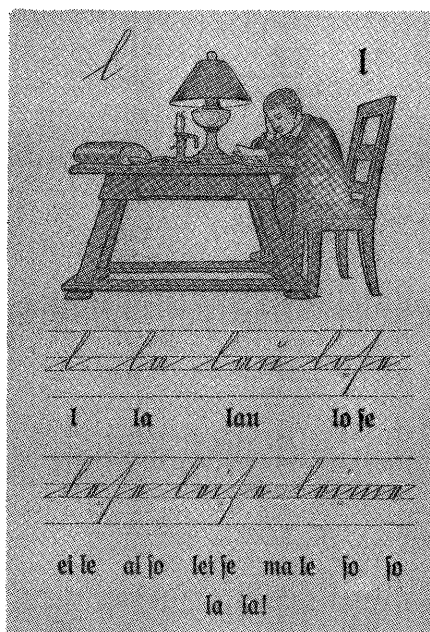 l l
l la lau loſe
l la lau lo ſe
leſe leiſe
ei le al ſo lei ſe ma le ſo ſo
la la!